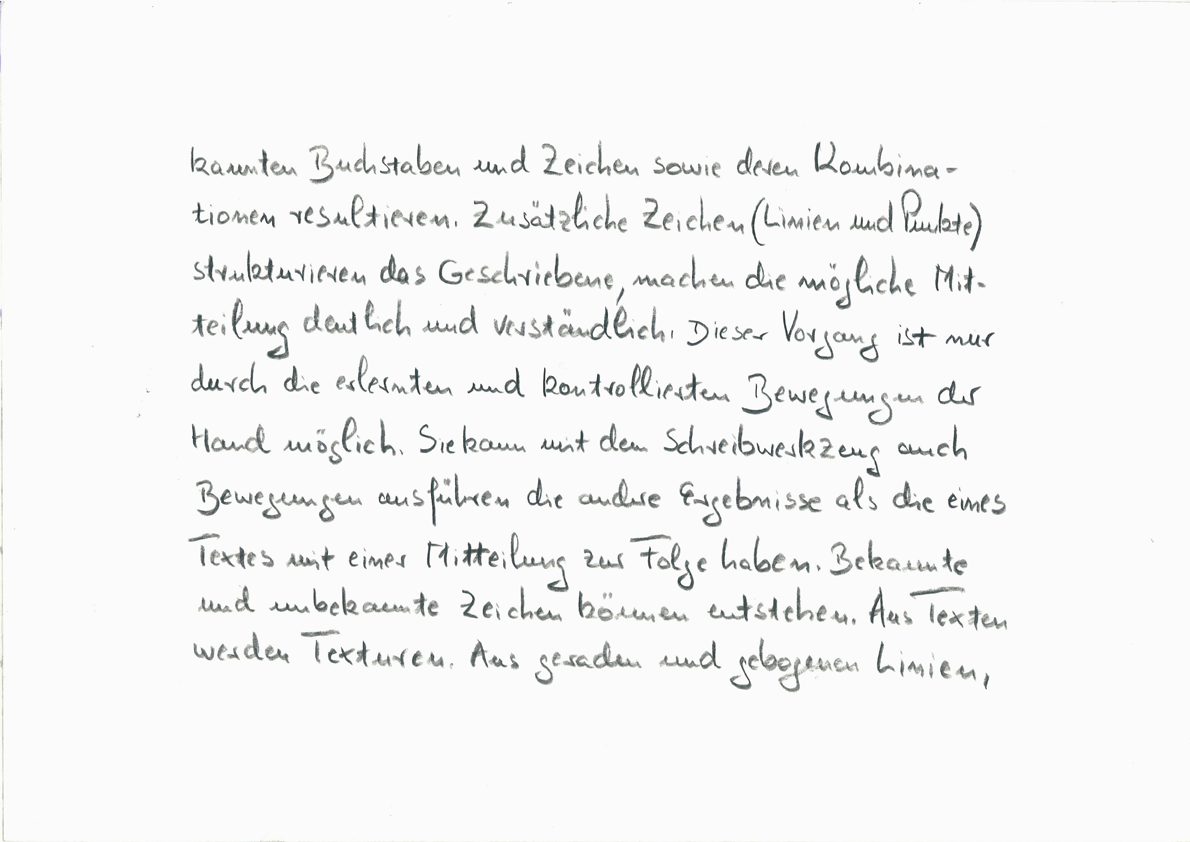 kannten Buchstaben und Zeichen sowie deren Kombina-
tionen resultieren. Zusätzliche Zeichen (Linien und Punkte)
strukturieren das Geschriebene, machen die mögliche Mit-
teilung deutlich und verständlich. Dieser Vorgang ist nur
durch die erlernten und kontrollierten Bewegungen der
Hand möglich. Sie kann mit dem Schreibwerkzeug auch
Bewegungen ausführen die andere Ergebnisse als die eines
Textes mit einer Mitteilung zur Folge haben. Bekannte
und unbekannte Zeichen können entstehen. Aus Texten
werden Texturen. Aus geraden und gebogenen Linien,